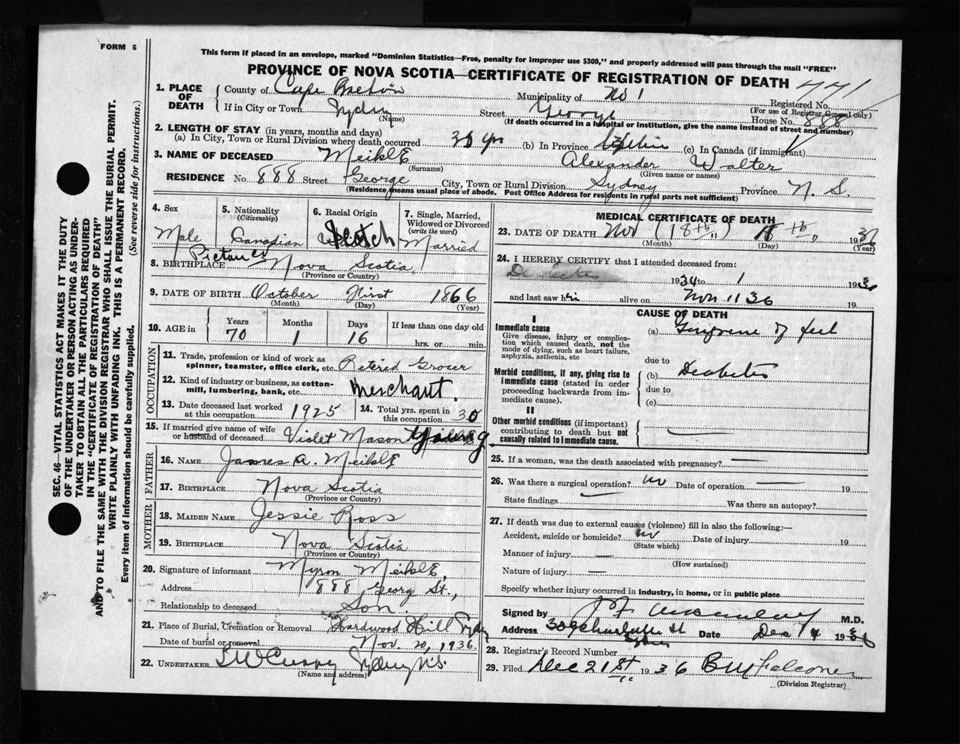 FORM 6
This form if placed in an envelope, marked "Dominion Statistics—Free, penalty for improper use $300," and properly addressed will pass through the mail "FREE"
PROVINCE OF NOVA SCOTIA—CERTIFICATE OF REGISTRATION OF DEATH
1. PLACE OF DEATH County of Cape Breton Municipality of No 1 Registered No.
(For use of Registrar General only)
If in City or Town Sydney (Name) Street George House No. 888
(If death occurred in a hospital or institution, give the name instead of street and number)
2. LENGTH OF STAY (in years, months and days)
(a) In City, Town or Rural Division where death occurred 30 yrs (b) In Province Lifetime (c) In Canada (if immigrant)
3. NAME OF DECEASED Meikle Alexander Walter
(Surname) (Given name or names)
RESIDENCE No. 888 Street George City, Town or Rural Division Sydney Province N. S.
(Residence means usual place of abode. Post Office Address for residents in rural parts not sufficient)
4. Sex 5. Nationality (Citizenship) 6. Racial Origin 7. Single, Married, Widowed or Divorced (write the word)
Male Canadian Scotch Married
Pictou Co
8. BIRTHPLACE Nova Scotia
(Province or Country)
9. DATE OF BIRTH October First 1866
(Month) (Day) (Year)
10. AGE in Years Months Days If less than one day old
70 1 16 hrs. or min.
OCCUPATION
11. Trade, profession or kind of work as spinner, teamster, office clerk, etc. Retired Grocer
12. Kind of industry or business, as cotton-mill, lumbering, bank, etc. Merchant.
13. Date deceased last worked at this occupation 1925 14. Total yrs. spent in this occupation 30
15. If married give name of wife or husband of deceased Violet Mason Young
FATHER
16. NAME James A. Meikle
17. BIRTHPLACE Nova Scotia
(Province or Country)
MOTHER
18. MAIDEN NAME Jessie Ross
19. BIRTHPLACE Nova Scotia
(Province or Country)
20. Signature of informant Myron Meikle,
Address 888 Georg St.,
Relationship to deceased Son.
21. Place of Burial, Cremation or Removal Hardwood Hill Sydney
Date of burial or removal Nov. 20, 1936.
22. UNDERTAKER Sydney N.S.
(Name and address)
MEDICAL CERTIFICATE OF DEATH
23. DATE OF DEATH Nov (18th) 18th 1936
(Month) (Day) (Year)
24. I HEREBY CERTIFY that I attended deceased from:
1934 to 1936
and last saw him alive on Nov 11 36 19
CAUSE OF DEATH
I
Immediate cause
Give disease, injury or complication which caused death, not the mode of dying, such as heart failure, asphyxia, asthenia, etc
(a) Gangrene of feet
due to
Morbid conditions, if any, giving rise to immediate cause (stated in order proceeding backwards from immediate cause).
(b) Diabetes
due to
(c)
II
Other morbid conditions (if important) contributing to death but not causally related to immediate cause.
25. If a woman, was the death associated with pregnancy?
26. Was there a surgical operation? no Date of operation 19
State findings Was there an autopsy?
27. If death was due to external causes (violence) fill in also the following:—
Accident, suicide or homicide? no Date of injury 19
(State which)
Manner of injury
(How sustained)
Nature of injury
Specify whether injury occurred in industry, in home, or in public place
Signed by M.D.
Address 309 Charlotte St Date Dec 14 1936
Sydney
28. Registrar's Record Number
29. Filed Dec 21st 1936 Falconer
(Division Registrar)
SEC. 46—VITAL STATISTICS ACT MAKES IT THE DUTY
OF THE UNDERTAKER OR PERSON ACTING AS UNDER-
TAKER TO OBTAIN ALL THE PARTICULARS REQUIRED
IN THE "CERTIFICATE OF REGISTRATION OF DEATH"
AND TO FILE THE SAME WITH THE DIVISION REGISTRAR WHO SHALL ISSUE THE BURIAL PERMIT.
WRITE PLAINLY WITH UNFADING INK. THIS IS A PERMANENT RECORD.
Every item of information should be carefully supplied. (See reverse side for instructions.)